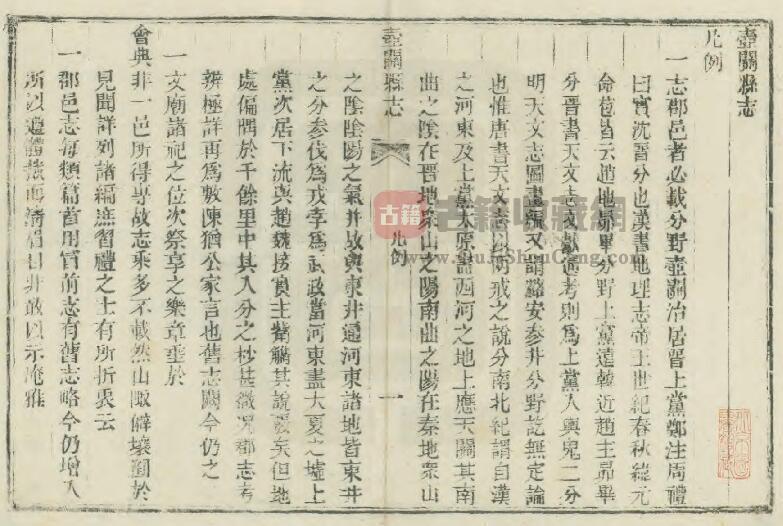 壺關縣志
凡例
一志郡邑者必載分野壺關治居晉上黨鄭注周禮
曰實沈晉分也漢書地理志帝王世紀春秋緯元
命苞皆云趙地昴畢分野上黨遠韓近趙主昴畢
分晉書天文志文獻通考則為上黨人輿鬼二分
明天文志圖書編又謂潞安參井分野訖無定論
也惟唐書天文志以兩戒之說分南北紀謂自漢
之河東及上黨太原盡西河之地上應天關其南
曲之陰在晉地眾山之陽南曲之陽在秦地眾山
壺關縣志
凡例
一
之陰陰陽之氣并故與東井通河東諸地皆東井
之分參伐為戎索為武政當河東盡大夏之墟上
黨次居下流與趙魏接實主觜觿其說覈矣但地
處偏隅於千餘里中其入分之杪甚微況郡志考
辨極詳再為敷陳猶公家言也舊志闕今仍之
一文廟諸祀之位次祭享之樂章垂於
會典非一邑所得專故志乘多不載然山陬僻壤罔於
見聞詳列諸編庶習禮之士有所折衷云
一郡邑志每類篇首用冒前志有舊志略今仍增入
所以遵體裁而清眉目非敢以示淹雅
古籍
古籍收藏網